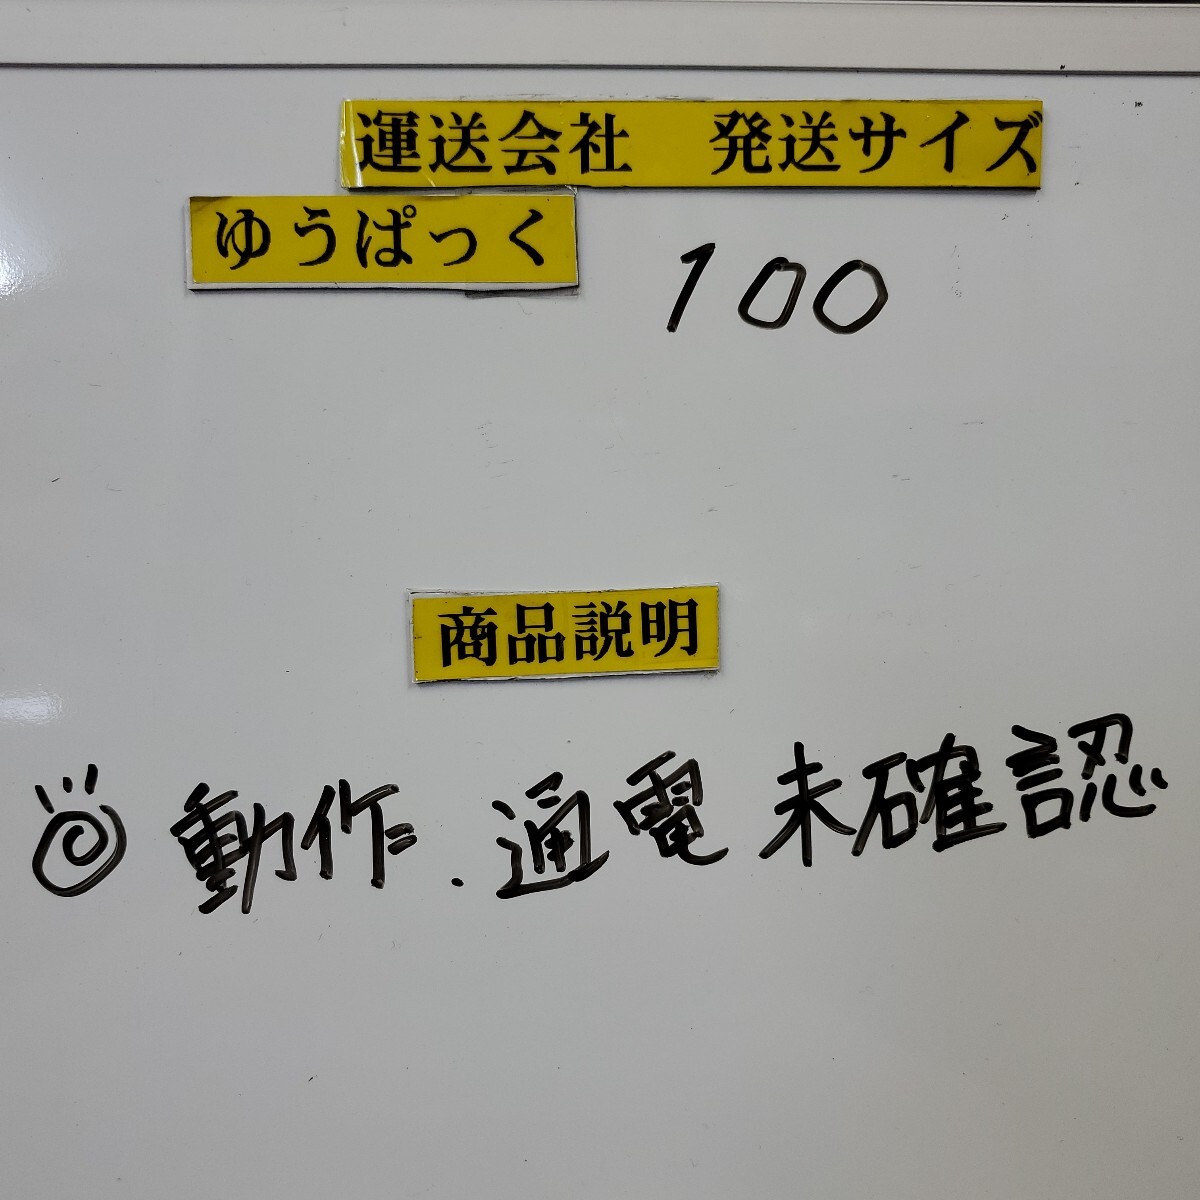 運送会社　発送サイズ
ゆうぱっく 100
商品説明
◎動作.通電未確認